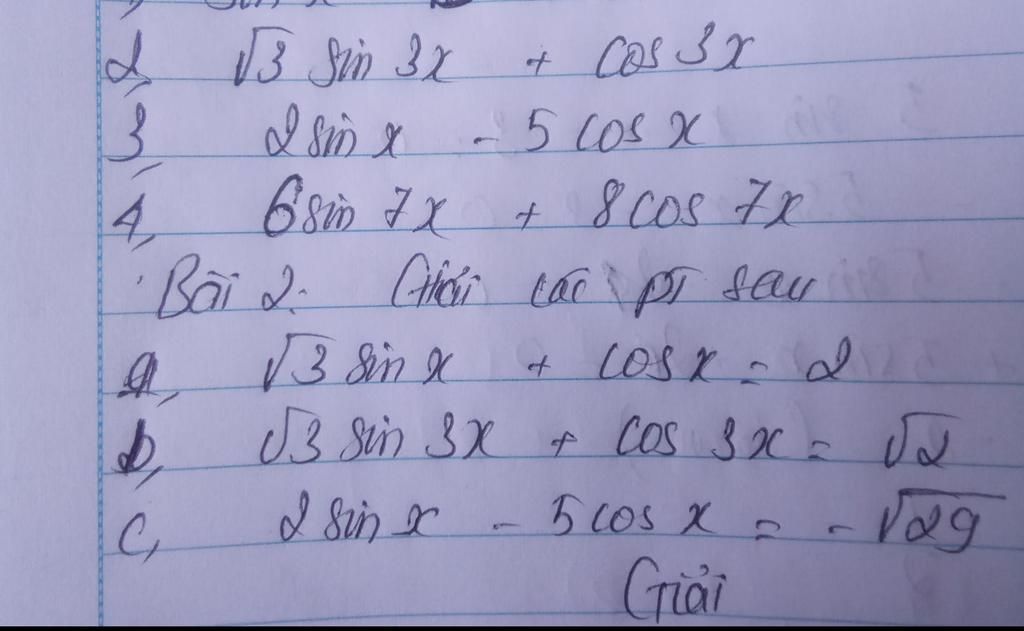 2, √3 sin 3x + cos 3x
3, 2 sin x - 5 cos x
4, 6 sin 7x + 8 cos 7x
Bài 2: Giải các pt sau
a, √3 sin x + cos x = 2
b, √3 sin 3x + cos 3x = √2
c, 2 sin x - 5 cos x = -√29
Giải